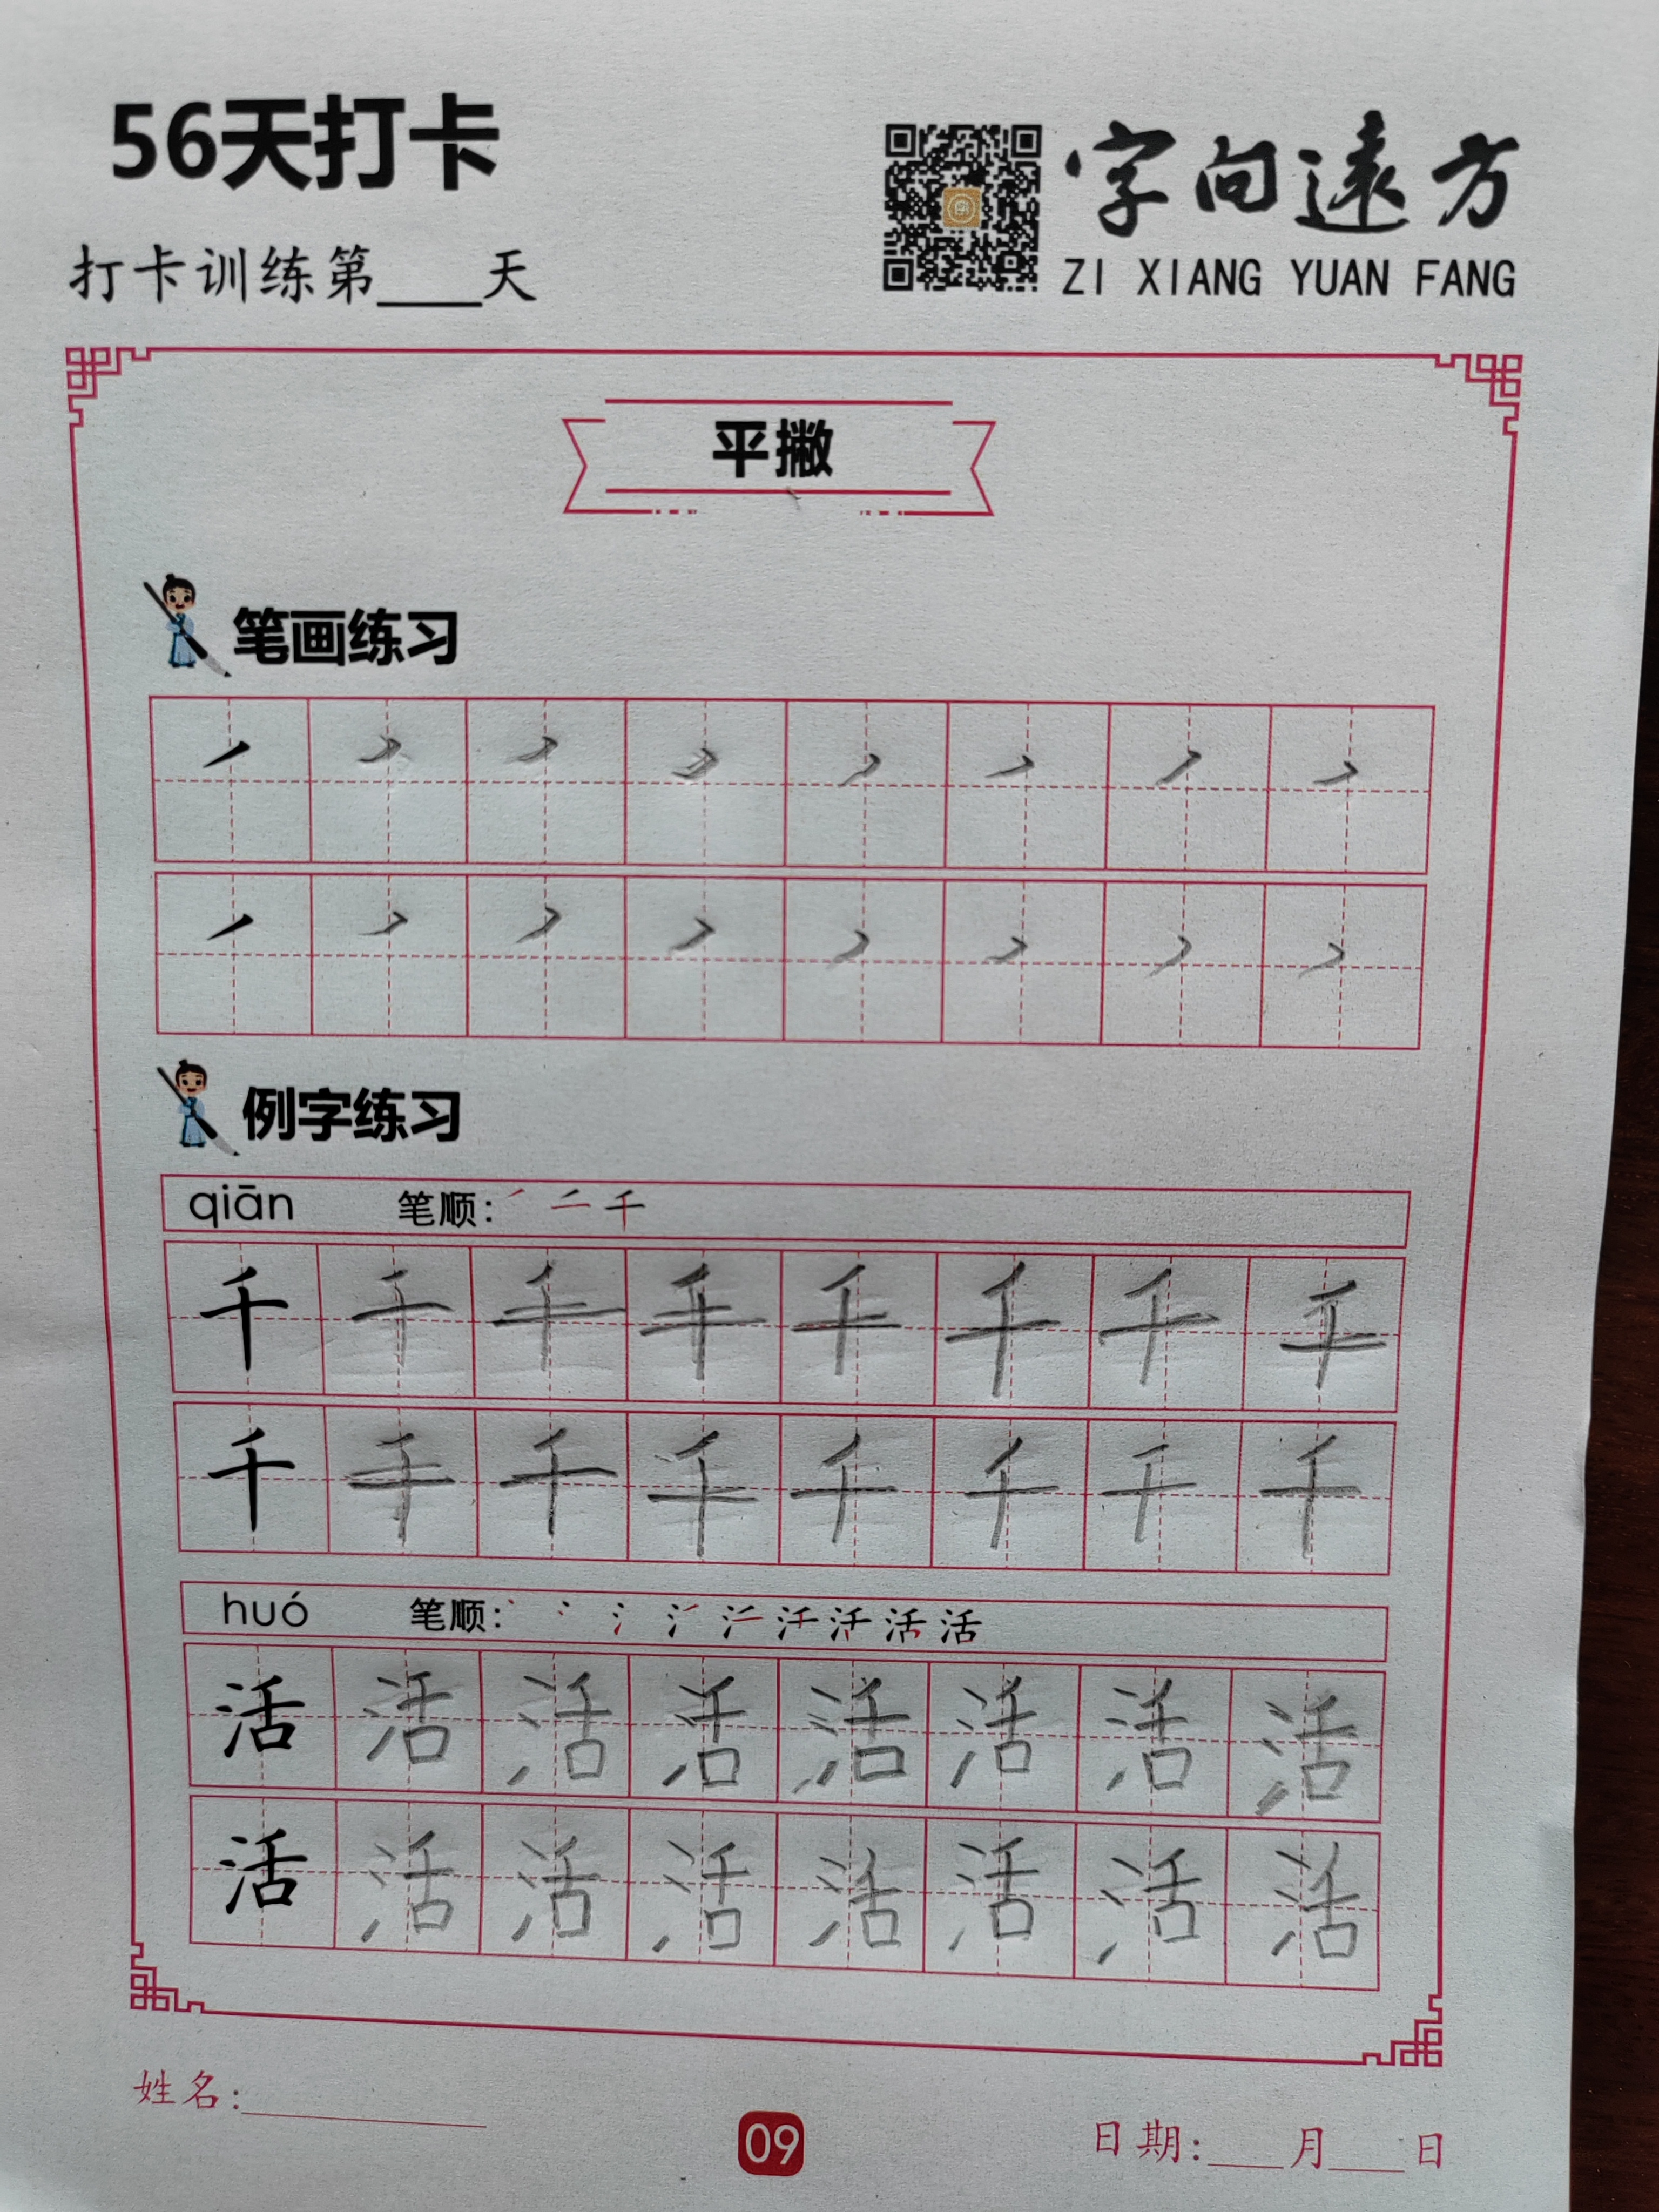 56天打卡
字向遠方
打卡训练第____天
ZI XIANG YUAN FANG
平撇
笔画练习
例字练习
qiān 笔顺: 丿 二 千
千 千 千 千 千 千 千 千
千 千 千 千 千 千 千 千
huó 笔顺: 活
活 活 活 活 活 活 活 活
活 活 活 活 活 活 活 活
姓名:________
09
日期:___月___日